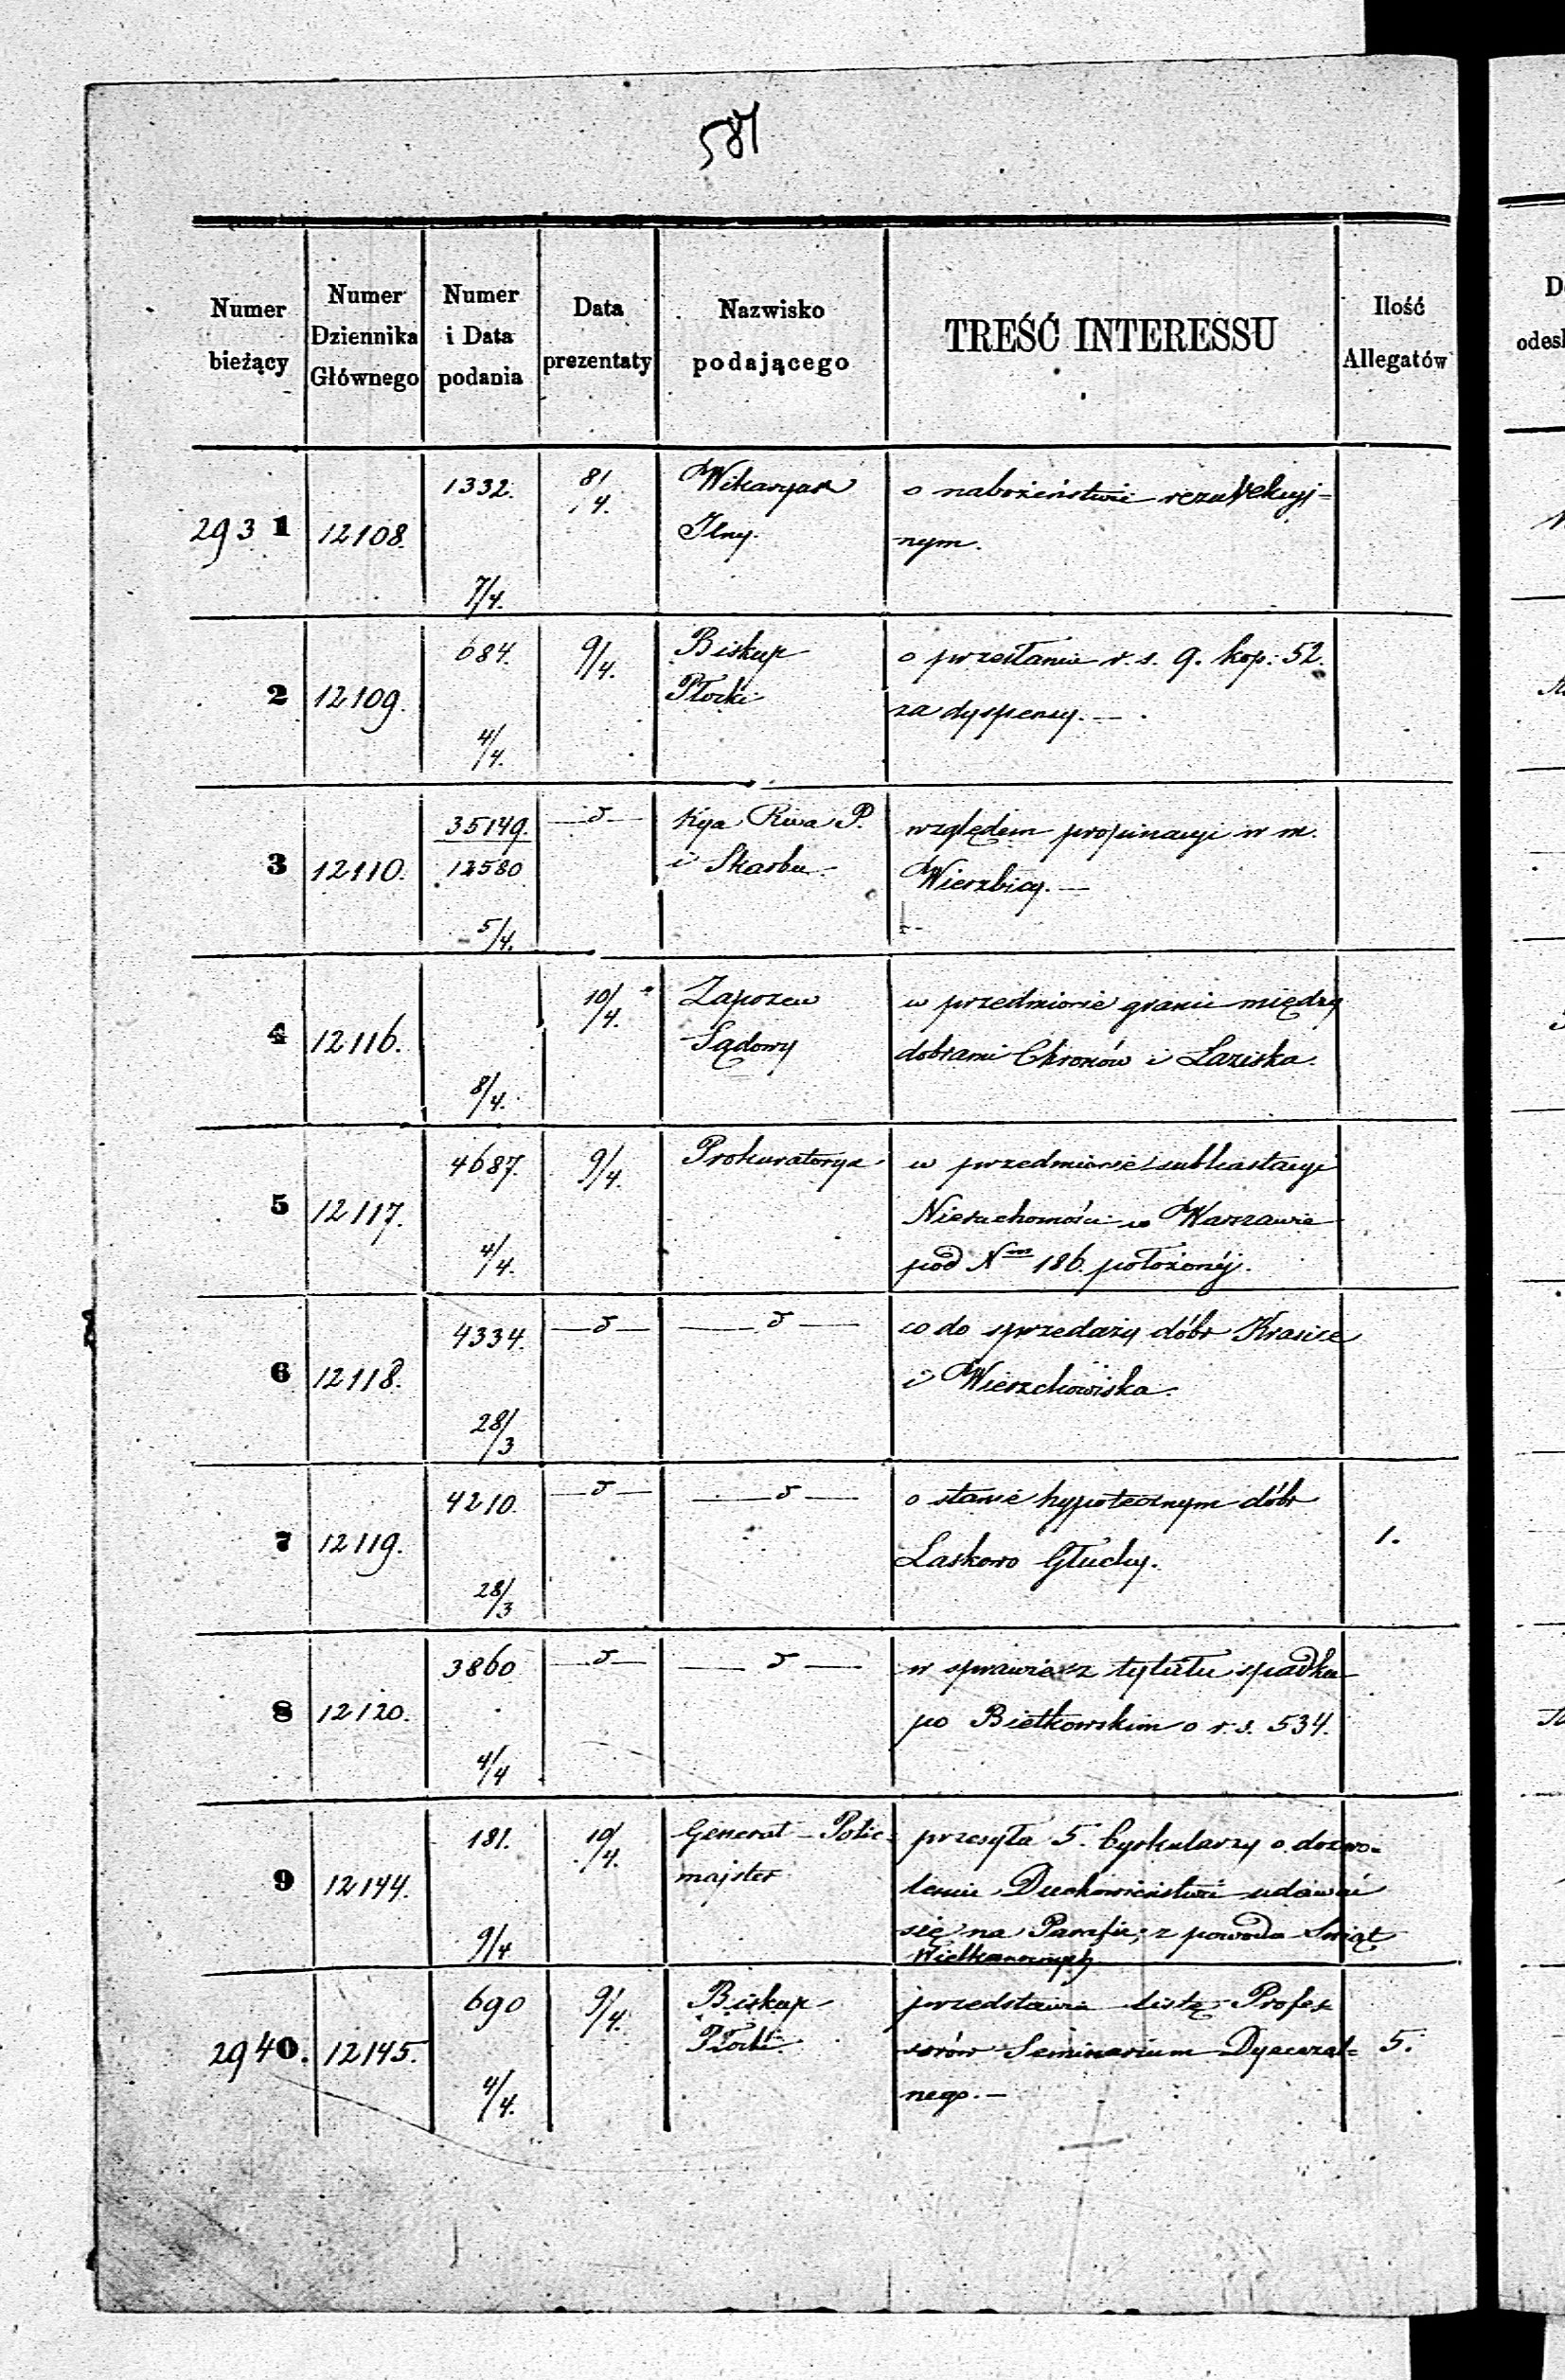 587
Numer bieżący
Numer Dziennika Głównego
Numer i Data podania
Data prezentaty
Nazwisko podającego
TREŚĆ INTERESSU
Ilość Allegatów
2931 12108. 1332. 7/4. 8/4. Wikaryat Jlny. o nabożeństwie rezurekcyj=
nym.
2 12109. 684. 4/4. 9/4. Biskup Płocki o przesłanie r. s. 9. kop: 52.
za dyspensy. —
3 12110. 35149. 12580 5/4. Kya Rwa P. i Skarbu. względem propinacyi w m.
Wierzbicy. —
4 12116. 8/4. 10/4. Zapozew Sądowy w przedmiocie granic między
dobrami Chronów i Łaziska.
5 12117. 4687. 4/4. 9/4. Prokuratorya w przedmiocie subhastacyi
Nieruchomości w Warszawie
pod Nm 186. położonéj.
6 12118. 4334. 28/3 co do sprzedaży dóbr Krasice
i Wierzchowiska.
7 12119. 4210. 28/3 o stanie hypotecznym dóbr 1.
Laskowo Głuchy.
8 12120. 3860 4/4 w sprawie z tytułu spadku
po Bielkowskim o r. s. 534.
9 12144. 181. 9/4 10/4. Generał-Polic=
majster przesyła 5. Cyrkularzy o dozwo=
leniu Duchowieństwu udawać
się na Parafie, z powodu Swiąt
Wielkanocnych
2940. 12145. 690 4/4. 9/4. Biskup Płocki. przedstawia listę Profes
sorów Seminarium Dyecezal= 5.
nego. —